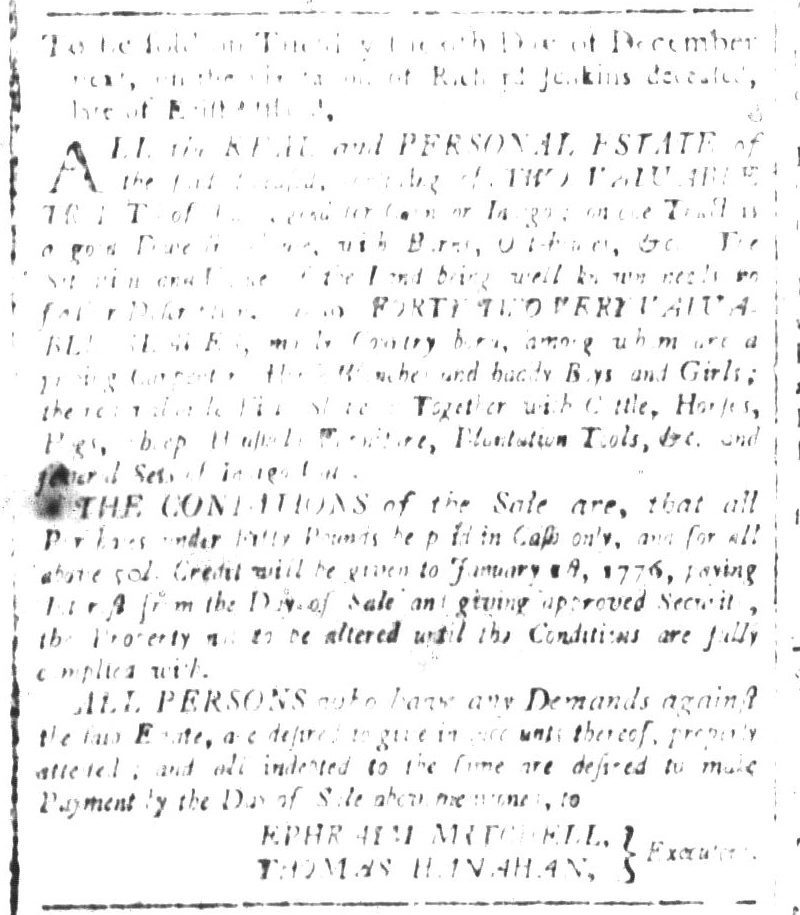 To be sold on Tuesday the 6th Day of December
next, on the Plantation of Richard Jenkins deceased,
late of
ALL the REAL and PERSONAL ESTATE of
the said deceased, consisting of TWO VALUABLE
TRACTS of Land, good for Corn or Indigo; on one Tract is
a good Dwelling House, with Barns, Out-houses, &c. The
Situation and Value of the Land being well known needs no
further Description. Also FORTY TWO VERY VALUA-
BLE SLAVES, mostly Country born, among whom are a
Carpenter, Wenches and handy Boys and Girls;
the rest Field Slaves. Together with Cattle, Horses,
Hogs, Sheep, Houshold Furniture, Plantation Tools, &c. and
several Sets of Indigo
THE CONDITIONS of the Sale are, that all
Purchases under Fifty Pounds be paid in Cash only, and for all
above 50l. Credit will be given to January 1st, 1776, paying
Interest from the Day of Sale and giving approved Security,
the Property not to be altered until the Conditions are fully
complied with.
ALL PERSONS who have any Demands against
the said Estate, are desired to give in Accounts thereof, properly
attested; and all indebted to the same are desired to make
Payment by the Day of Sale above mentioned, to
EPHRAIM MITCHELL,
THOMAS HANAHAN, } Executors.